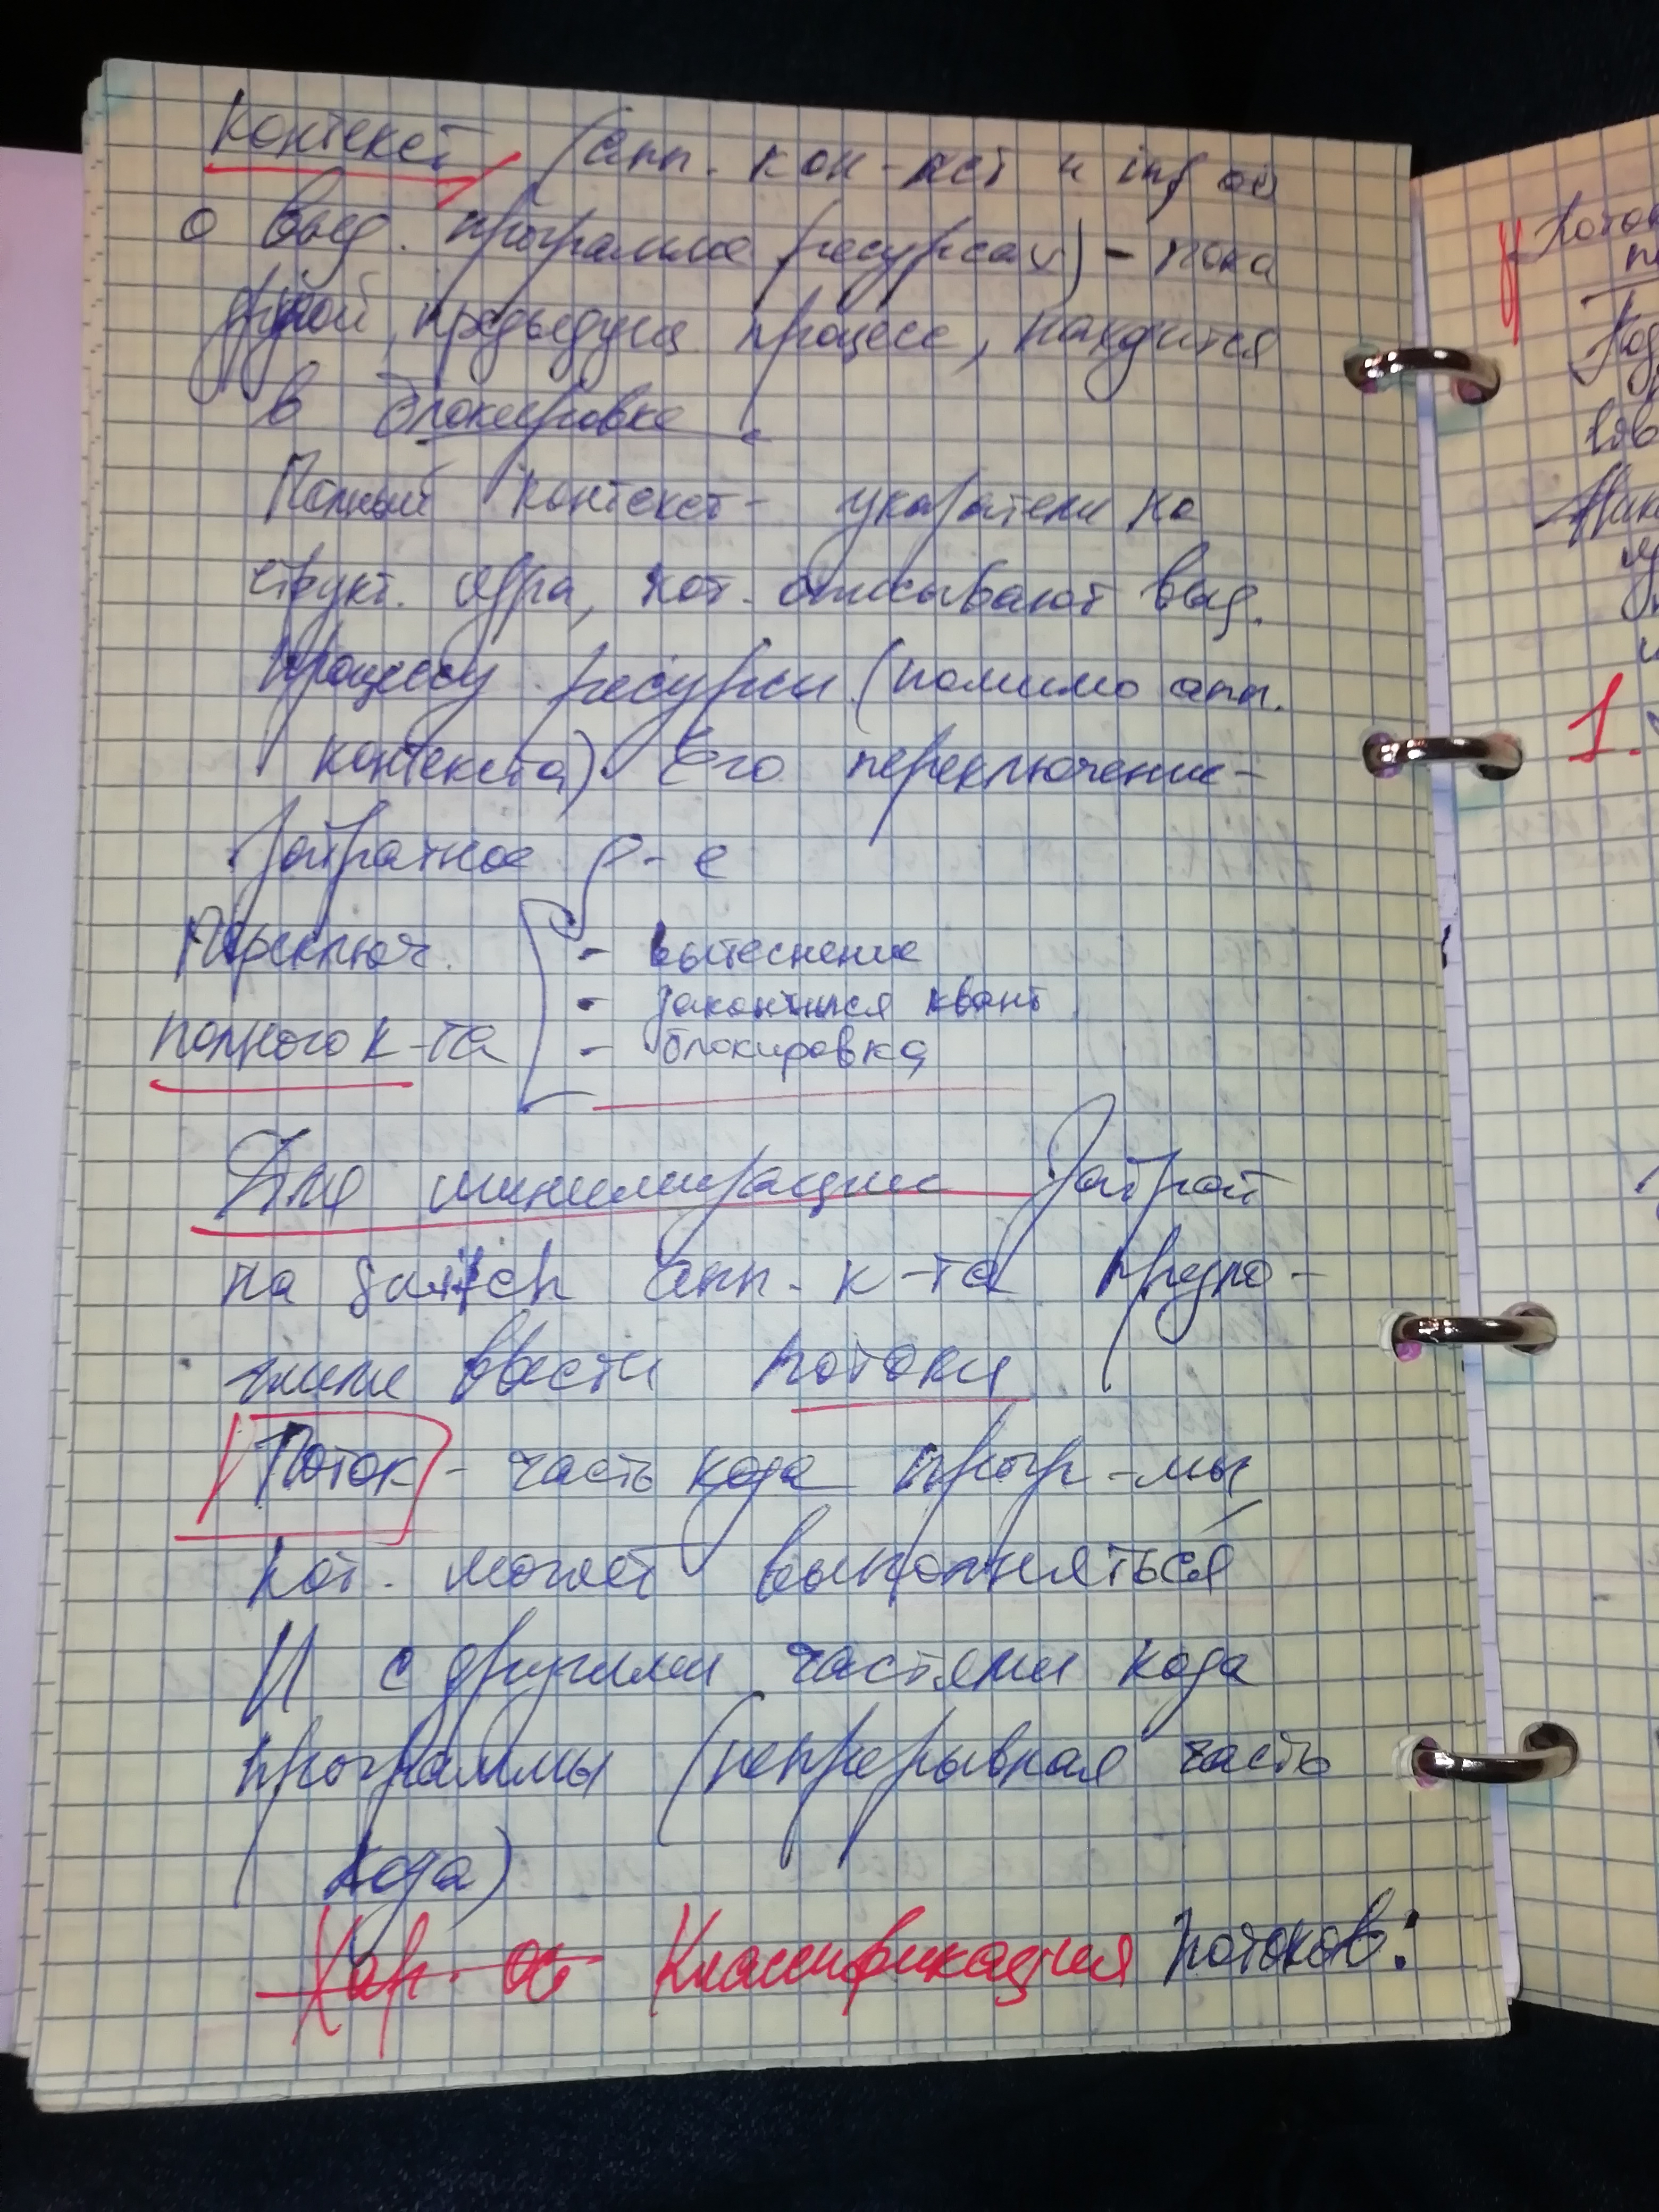 Контекст (апп. кон-кст и inf ой
о выд. программе ресурсах) - пока
другой, предыдущ. процесс, находится
в блокировке.
Полный контекст - указатели на
структ. ядра, кот. описывают выд.
процессу ресурсы (помимо апп.
контекста). Его переключение -
затратное
Переключ.
полного к-та
- вытеснение
- закончился квант
- блокировка
Для минимизации затрат
на switch апп. к-та предло-
жили ввести потоки
Поток - часть кода прогр-мы
кот. может выполняться
// с другими частями кода
программы (непрерывная часть
кода)
Классификация потоков:
1.